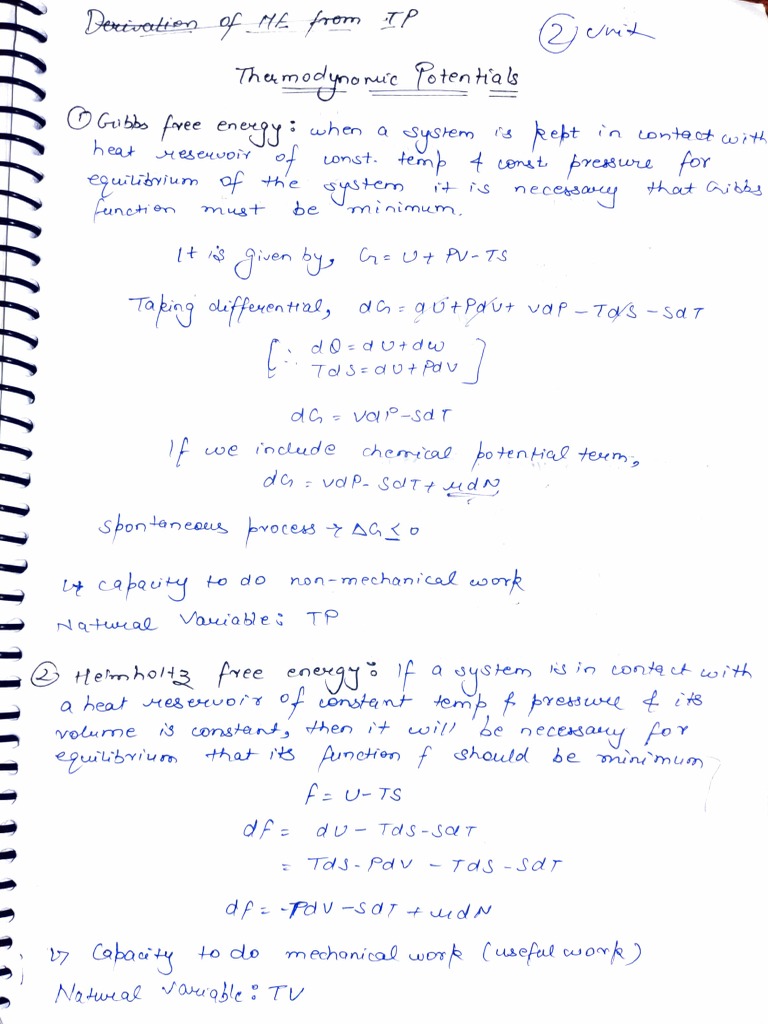 Derivation of ME from TP
② Unit
Thermodynamic Potentials
① Gibbs free energy: when a system is kept in contact with
heat reservoir of const. temp & const. pressure for
equilibrium of the system it is necessary that Gibbs
function must be minimum.
It is given by, G = U + PV - TS
Taking differential, dG = dU + PdV + VdP - TdS - SdT
[∵ dQ = dU + dW
TdS = dU + PdV]
dG = VdP - SdT
If we include chemical potential term,
dG = VdP - SdT + μdN
Spontaneous process → ΔG ≤ 0
↳ capacity to do non-mechanical work
Natural Variable: TP
② Helmholtz free energy: If a system is in contact with
a heat reservoir of constant temp & pressure & its
volume is constant, then it will be necessary for
equilibrium that its function f should be minimum
f = U - TS
df = dU - TdS - SdT
= TdS - PdV - TdS - SdT
df = -PdV - SdT + μdN
↳ Capacity to do mechanical work (useful work)
Natural Variable: TV